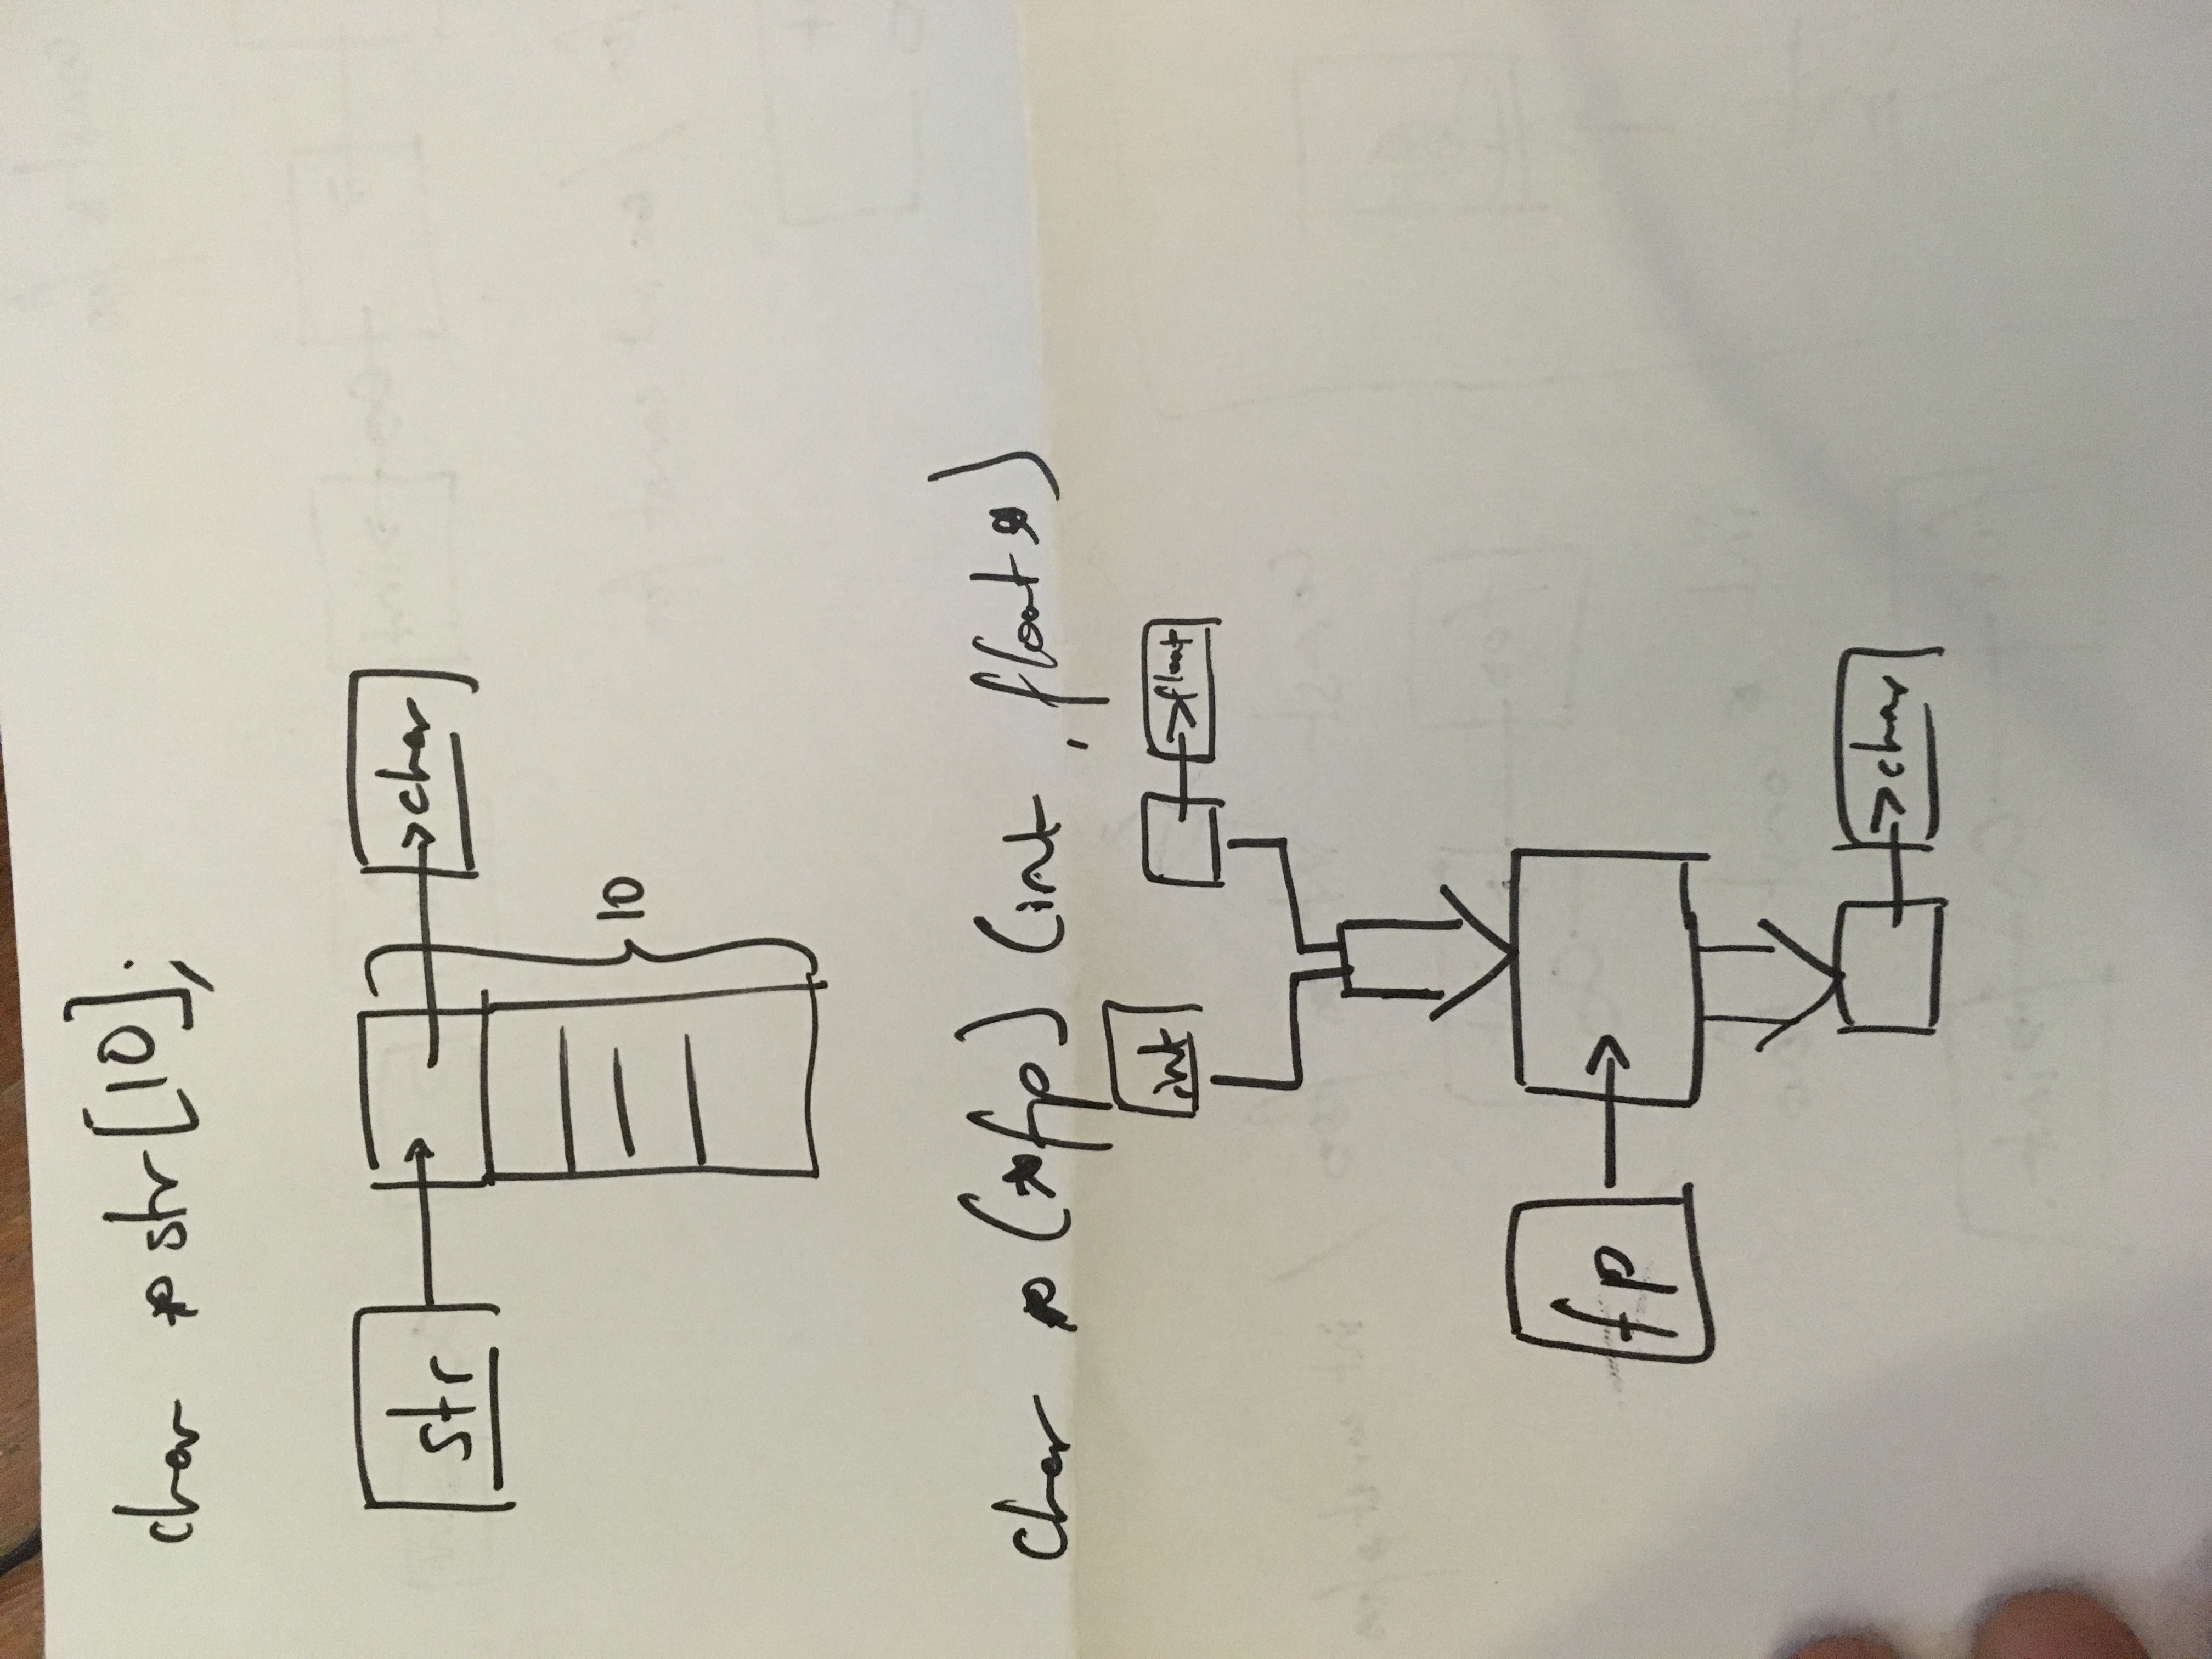 char *str[10];
str
char
10
char *(*fp) (int, float*)
int
float
fp
char